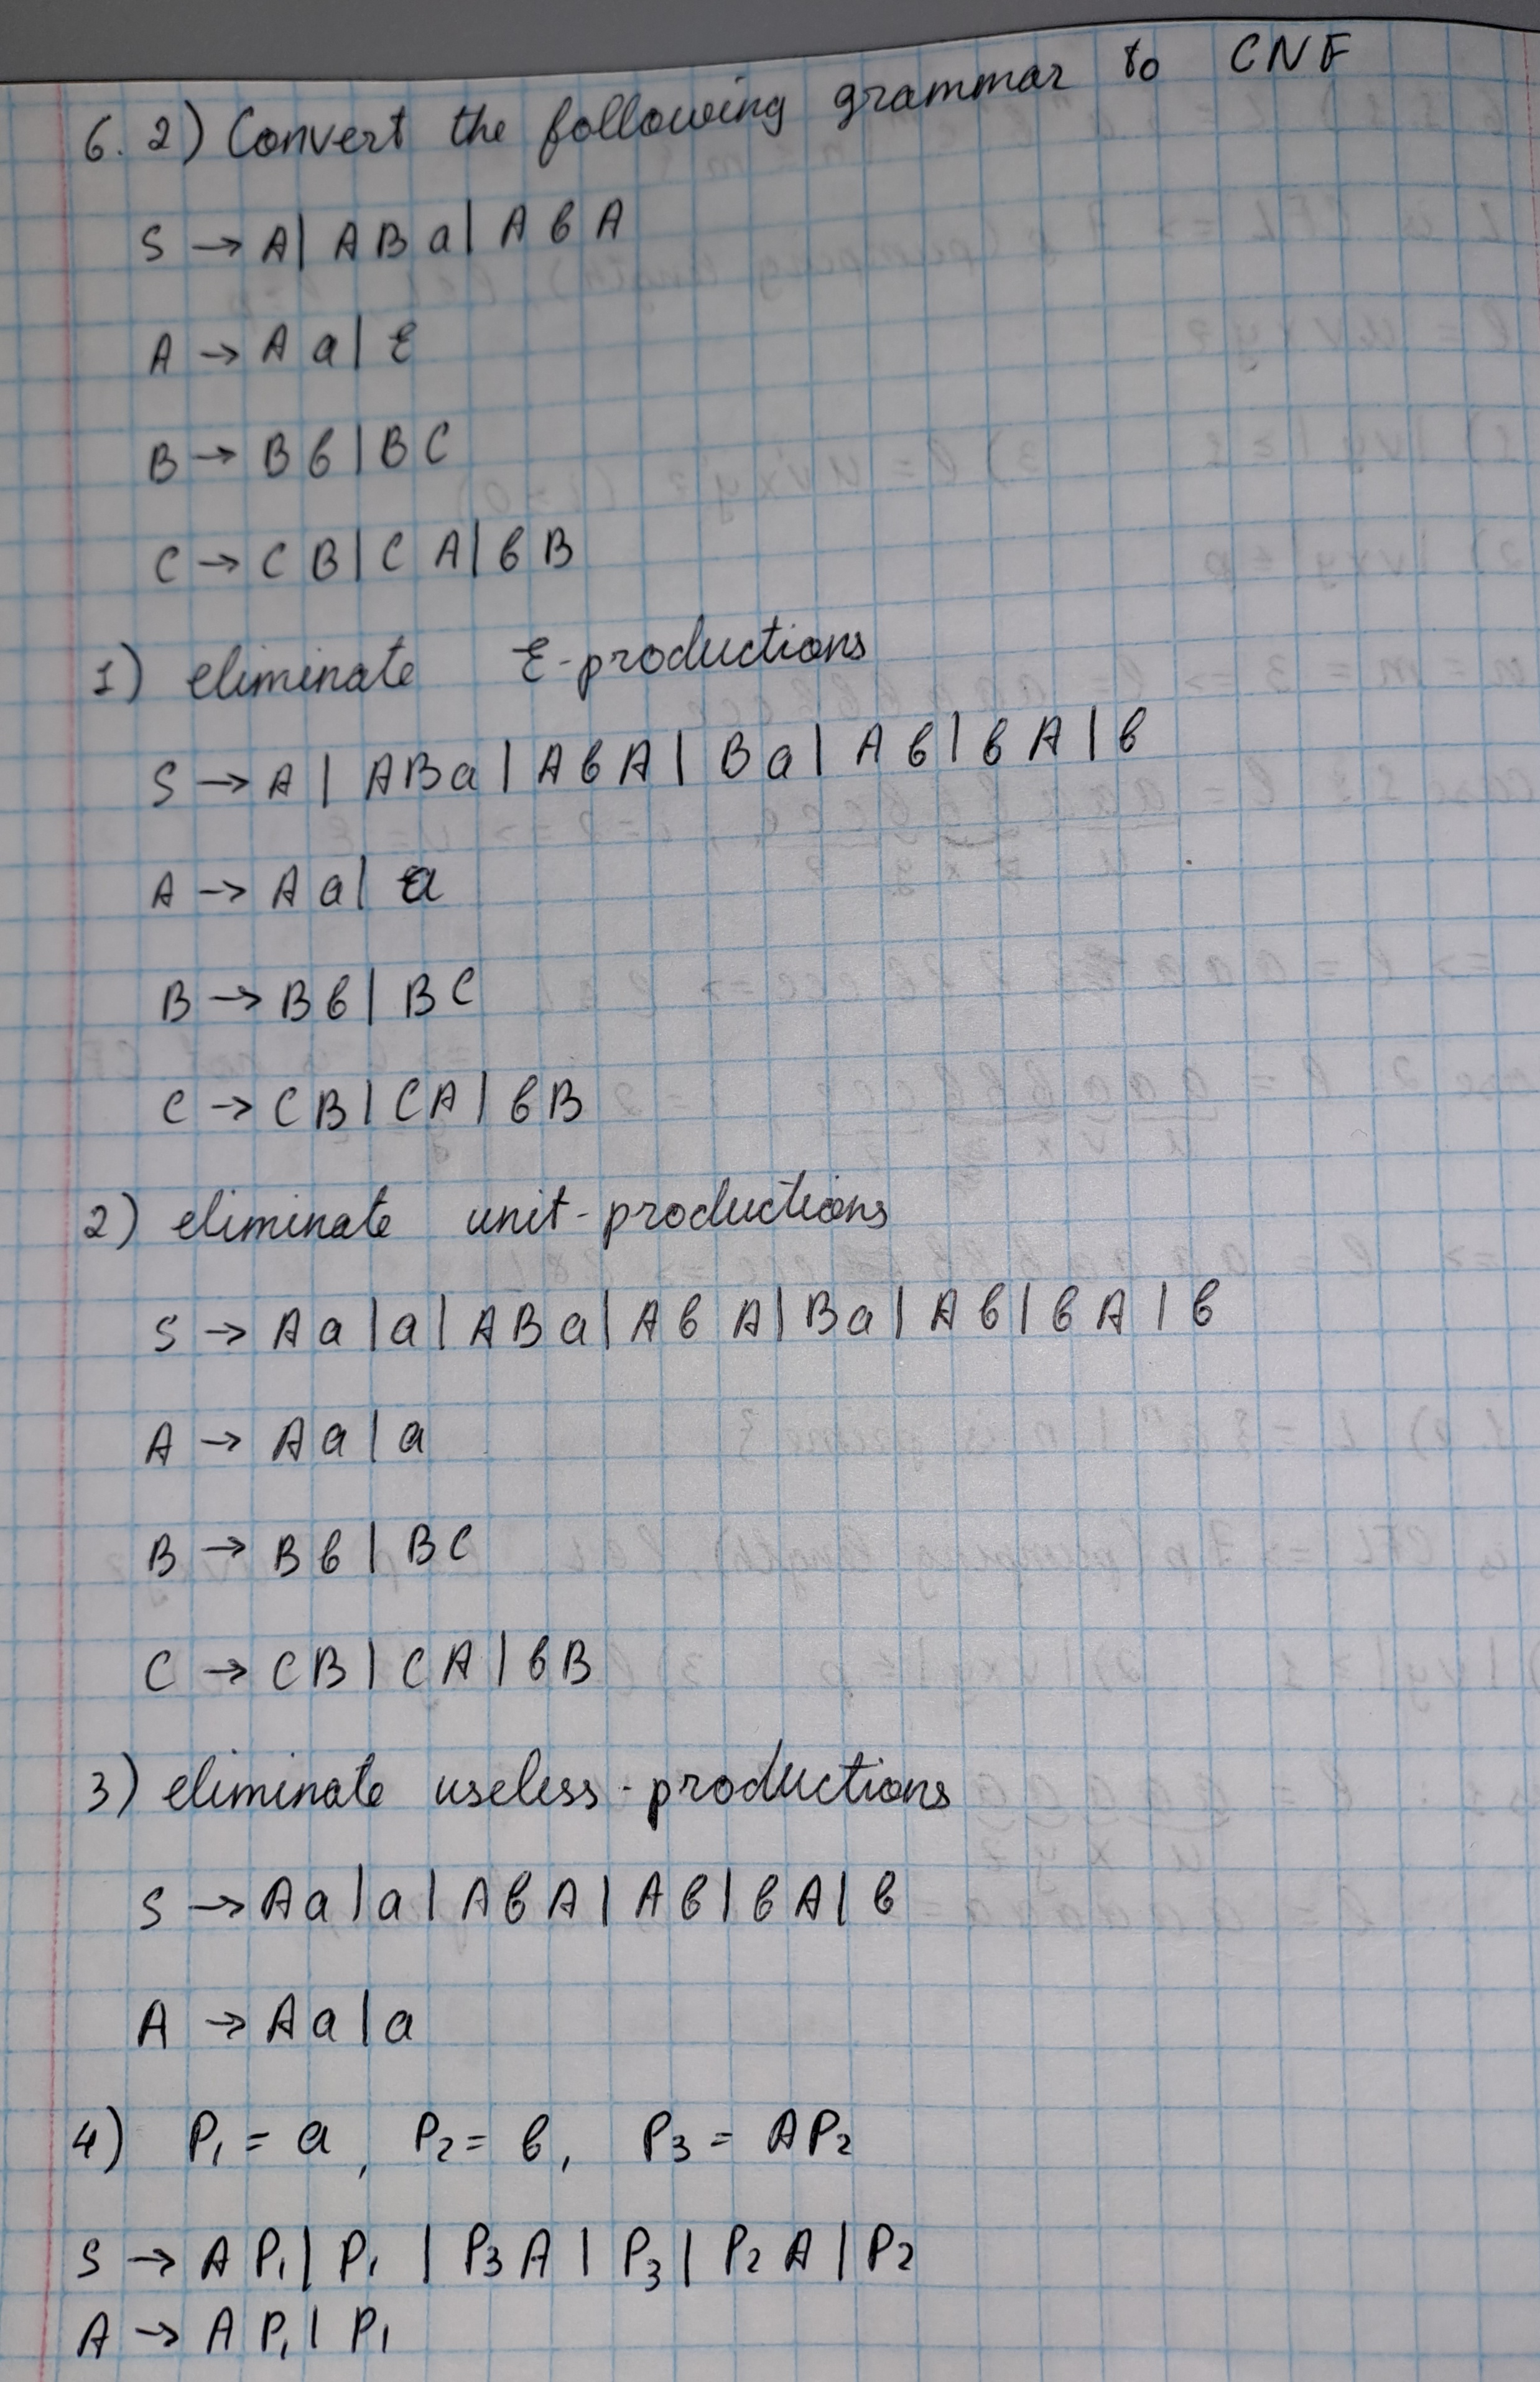 6. 2) Convert the following grammar to CNF
S → A | A B a | A b A
A → A a | ε
B → B b | B C
C → C B | C A | b B
1) eliminate ε-productions
S → A | A B a | A b A | B a | A b | b A | b
A → A a | a
B → B b | B C
C → C B | C A | b B
2) eliminate unit-productions
S → A a | a | A B a | A b A | B a | A b | b A | b
A → A a | a
B → B b | B C
C → C B | C A | b B
3) eliminate useless-productions
S → A a | a | A b A | A b | b A | b
A → A a | a
4) P₁ = a, P₂ = b, P₃ = A P₂
S → A P₁ | P₁ | P₃ A | P₃ | P₂ A | P₂
A → A P₁ | P₁